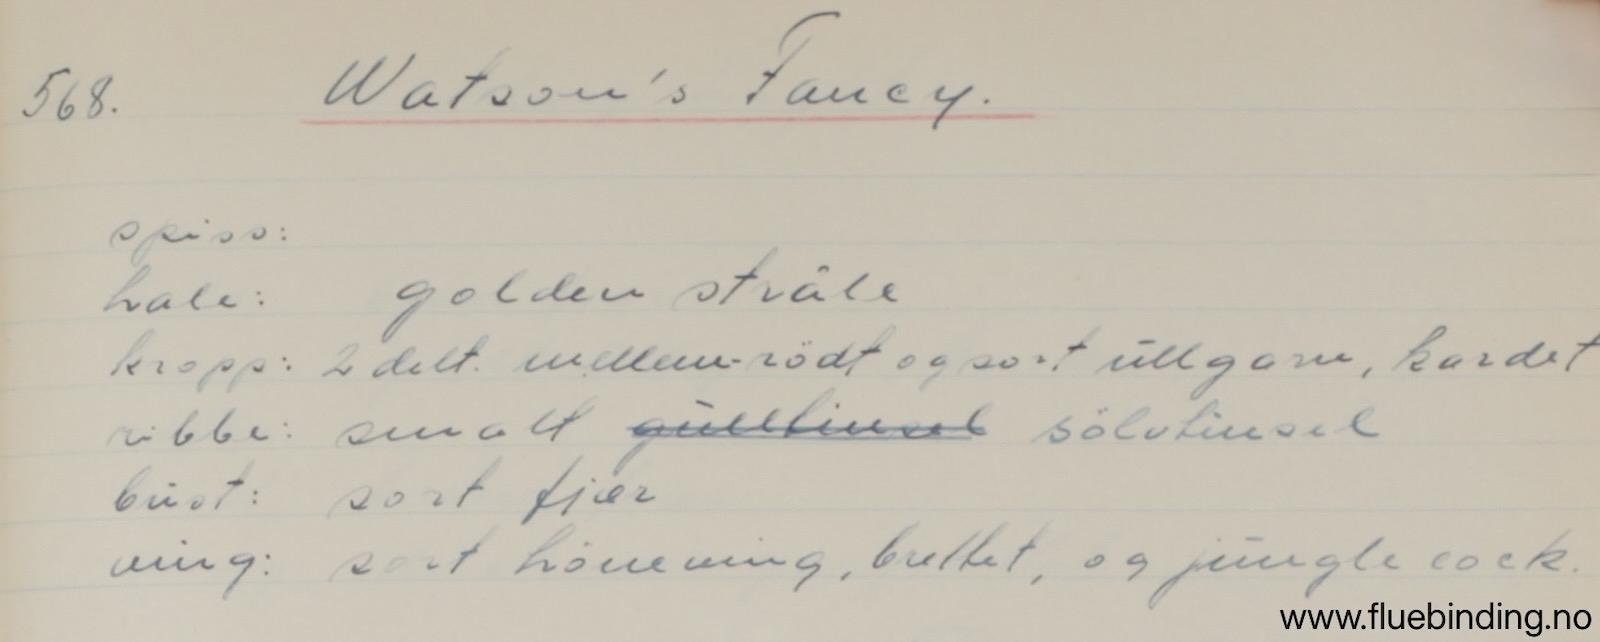 568. Watson's Fancy.
spiss:
hale: golden stråle
kropp: 2 delt. mellem-rödt og sort ullgarn, kardet
ribbe: smalt gulltinsel sölvtinsel
bust: sort fjær
ving: sort höneving, brettet, og jungle cock.
www.fluebinding.no